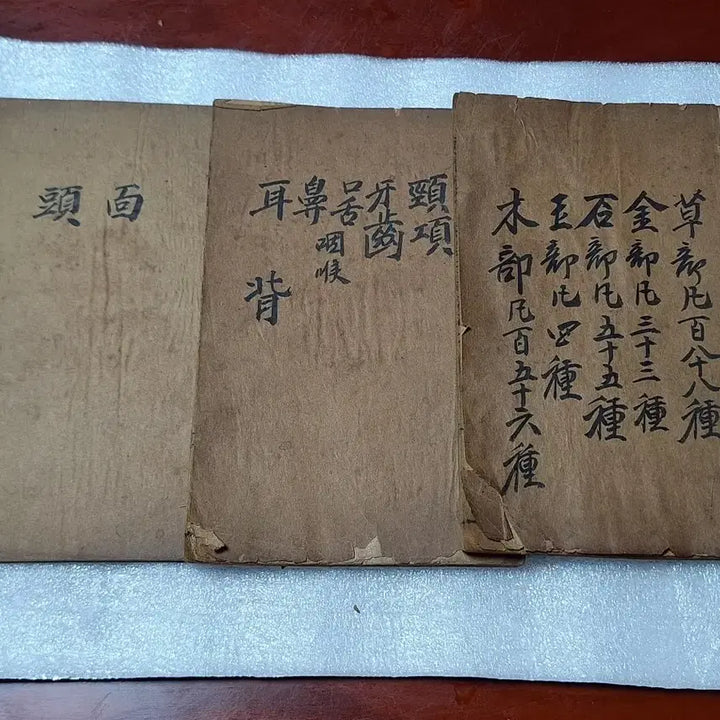 草部凡百八十八種
金部凡三十三種
石部凡五十五種
玉部凡四種
木部凡百五十六種
頸項
牙齒
口舌咽喉
鼻
耳背
面
頭